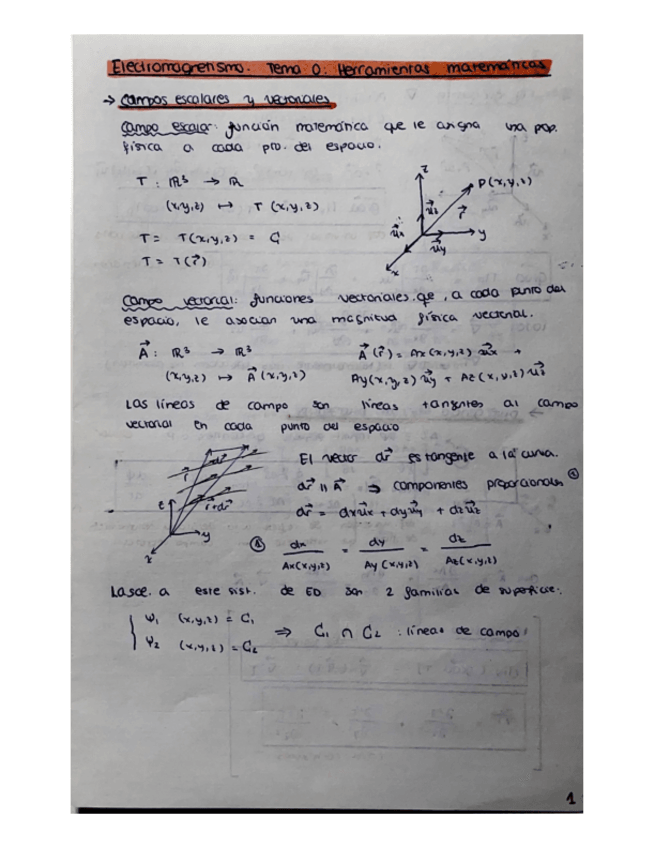 Electromagnetismo. Tema 0: Herramientas matemáticas
→ Campos escolares y vectoriales
Campo escalar: función matemática que le asigna una prop.
física a cada pto. del espacio.
T : ℝ³ → ℝ
(x,y,z) ↦ T (x,y,z)
T = T(x,y,z) = C
T = T(r⃗)
z
P(x,y,z)
r⃗
u⃗z
u⃗x
u⃗y
y
x
Campo vectorial: funciones vectoriales que, a cada punto del
espacio, le asocian una magnitud física vectorial.
A⃗ : ℝ³ → ℝ³ A⃗(r⃗) = Ax(x,y,z) u⃗x +
(x,y,z) ↦ A⃗(x,y,z) Ay(x,y,z) u⃗y + Az(x,y,z) u⃗z
Las líneas de campo son líneas tangentes al campo
vectorial en cada punto del espacio
El vector dr⃗ es tangente a la curva.
dr⃗ || A⃗ ⇒ componentes proporcionales ①
dr⃗ = dx u⃗x + dy u⃗y + dz u⃗z
dr⃗
r⃗
r⃗+dr⃗
z
y
x
① dx/Ax(x,y,z) = dy/Ay(x,y,z) = dz/Az(x,y,z)
La sol. a este sist. de ED son 2 familias de superficie.
Ψ₁ (x,y,z) = C₁
Ψ₂ (x,y,z) = C₂
⇒ C₁ ∩ C₂ : líneas de campo
1